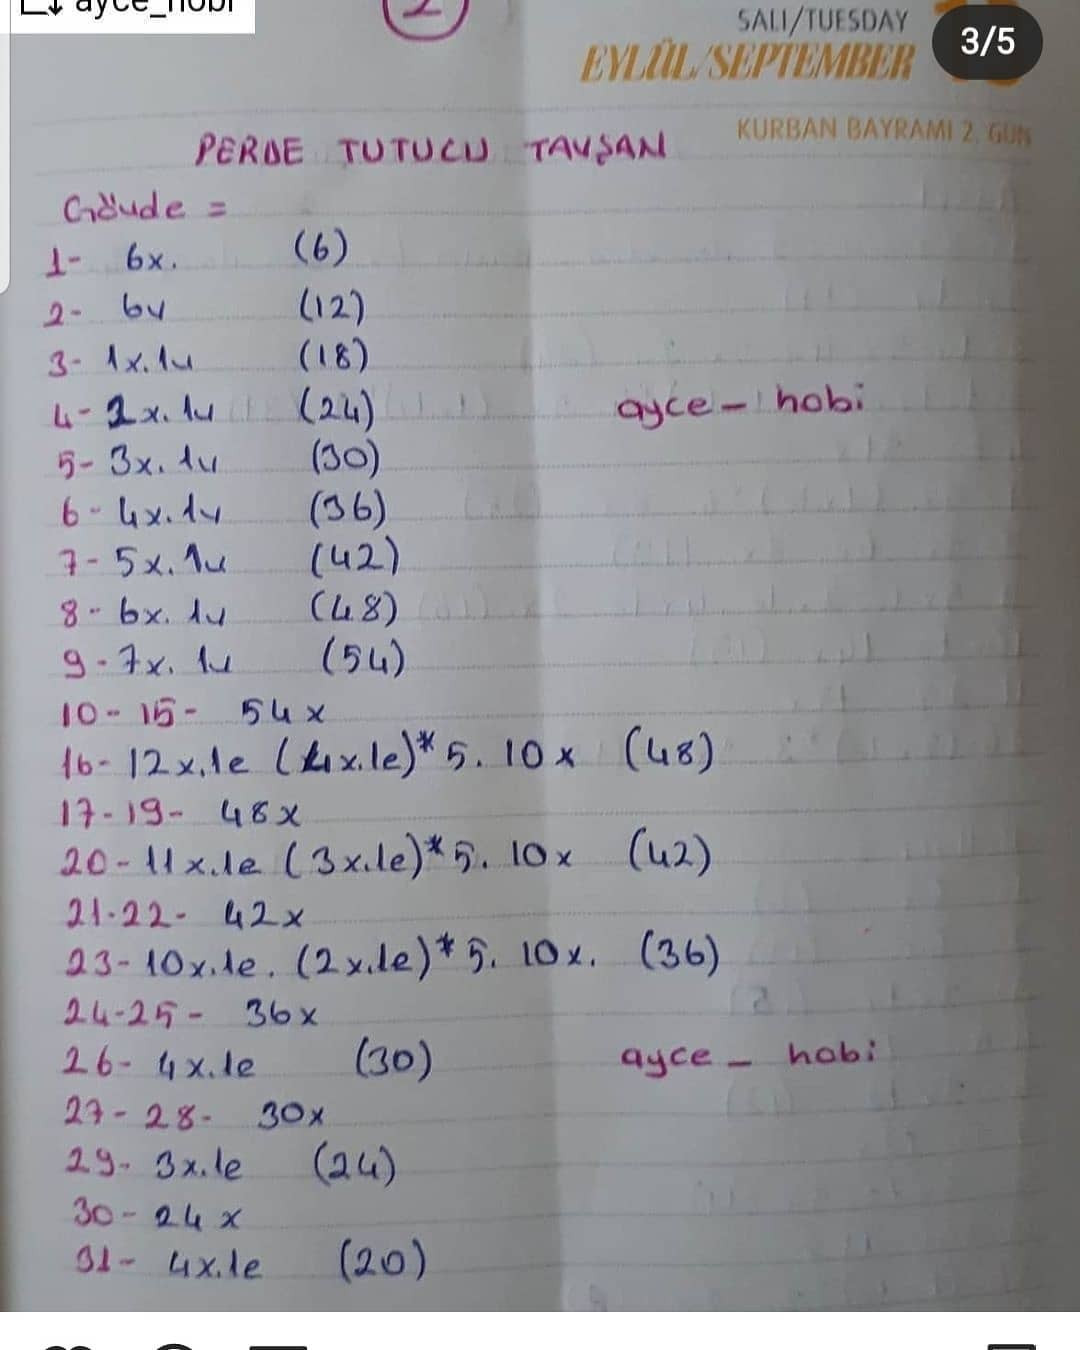 ayce_hobi
2
SALI/TUESDAY
EYLÜL/SEPTEMBER
3/5
KURBAN BAYRAMI 2. GÜN
PERDE TUTUCU TAVŞAN
Gövde =
1- 6x. (6)
2- 6v (12)
3- 1x.1v (18)
4- 2x.1v (24)
ayce-hobi
5- 3x.1v (30)
6- 4x.1v (36)
7- 5x.1v (42)
8- 6x.1v (48)
9- 7x.1v (54)
10-15- 54x
16- 12x.1e (4x.1e)*5. 10x (48)
17-19- 48x
20- 11x.1e (3x.1e)*5. 10x (42)
21-22- 42x
23- 10x.1e. (2x.1e)*5. 10x. (36)
24-25- 36x
26- 4x.1e (30)
ayce - hobi
27-28- 30x
29- 3x.1e (24)
30- 24x
31- 4x.1e (20)